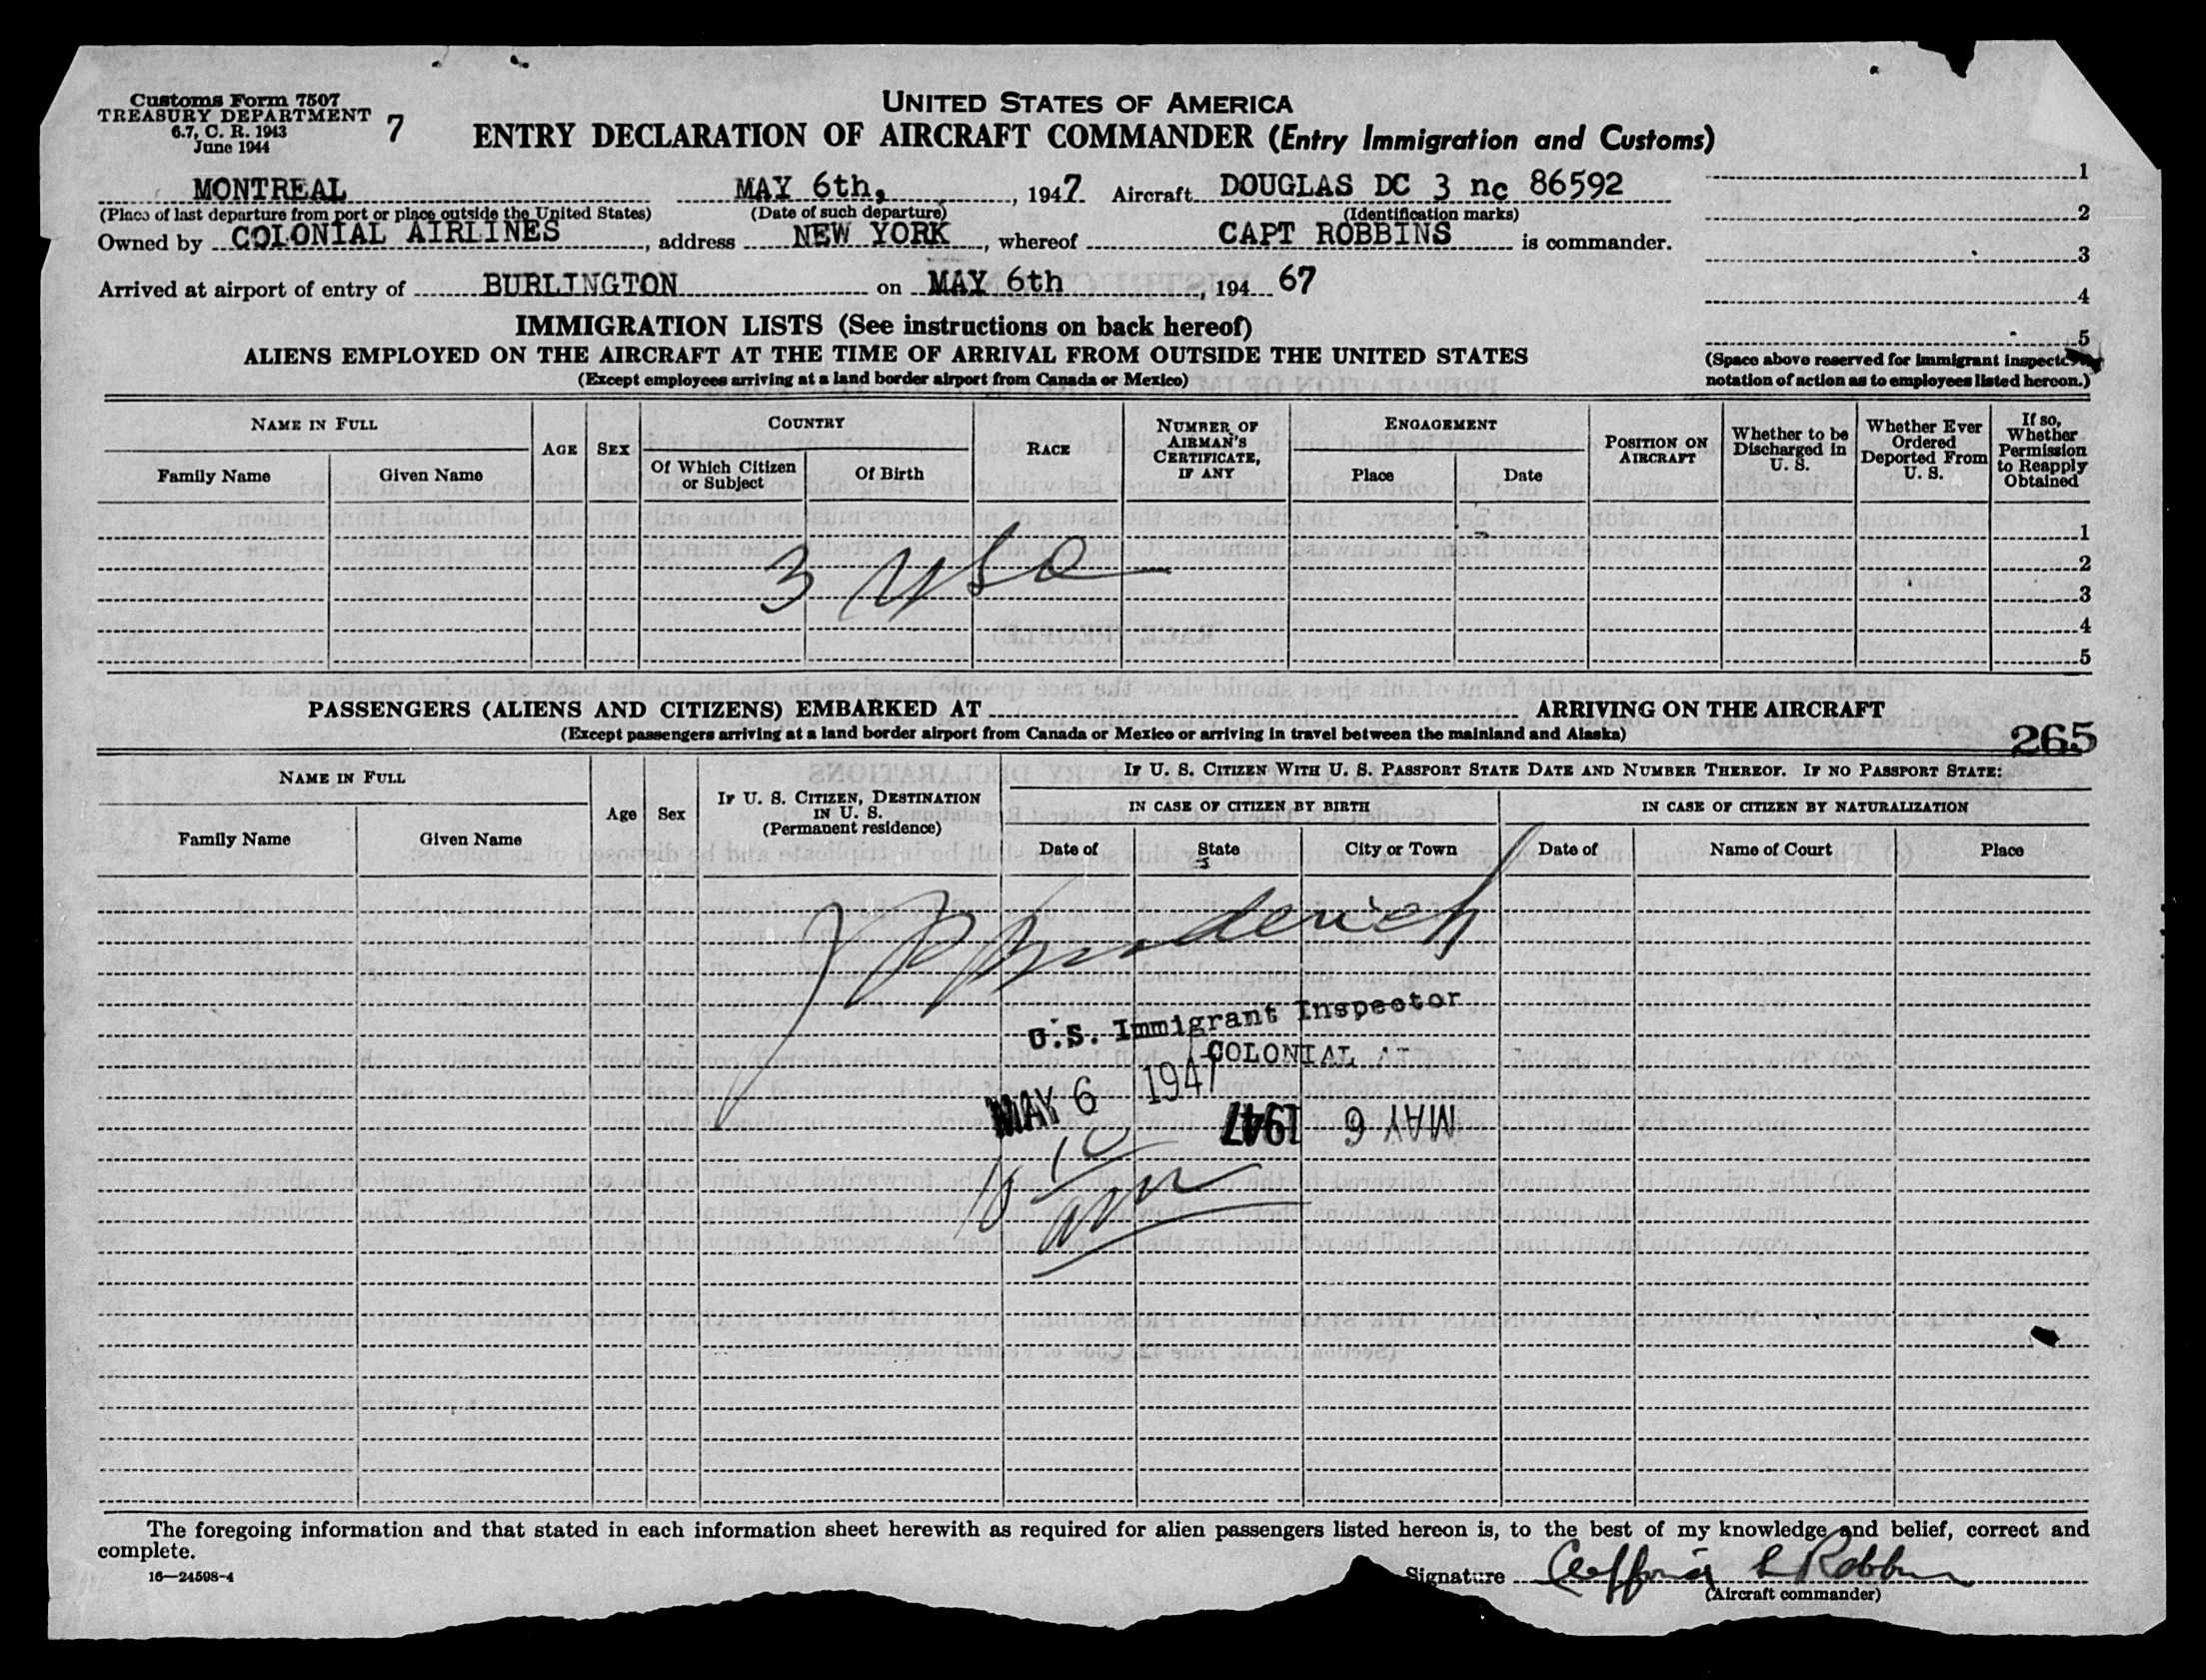 Customs Form 7507
TREASURY DEPARTMENT
6.7, C. R. 1943
June 1944
7
UNITED STATES OF AMERICA
ENTRY DECLARATION OF AIRCRAFT COMMANDER (Entry Immigration and Customs)
MONTREAL MAY 6th, , 1947 Aircraft DOUGLAS DC 3 nc 86592
(Place of last departure from port or place outside the United States) (Date of such departure) (Identification marks)
Owned by COLONIAL AIRLINES , address NEW YORK , whereof CAPT ROBBINS is commander.
Arrived at airport of entry of BURLINGTON on MAY 6th , 194 67
1
2
3
4
5
(Space above reserved for immigrant
notation of action as to employees listed hereon.)
IMMIGRATION LISTS (See instructions on back hereof)
ALIENS EMPLOYED ON THE AIRCRAFT AT THE TIME OF ARRIVAL FROM OUTSIDE THE UNITED STATES
(Except employees arriving at a land border airport from Canada or Mexico)
NAME IN FULL
Family Name Given Name
AGE
SEX
COUNTRY
Of Which Citizen or Subject
Of Birth
RACE
NUMBER OF AIRMAN'S CERTIFICATE, IF ANY
ENGAGEMENT
Place Date
POSITION ON AIRCRAFT
Whether to be Discharged in U. S.
Whether Ever Ordered Deported From U. S.
If so, Whether Permission to Reapply Obtained
1
2
3
4
5
3
PASSENGERS (ALIENS AND CITIZENS) EMBARKED AT ARRIVING ON THE AIRCRAFT
(Except passengers arriving at a land border airport from Canada or Mexico or arriving in travel between the mainland and Alaska)
265
NAME IN FULL
Family Name Given Name
Age
Sex
IF U. S. CITIZEN, DESTINATION IN U. S.
(Permanent residence)
IF U. S. CITIZEN WITH U. S. PASSPORT STATE DATE AND NUMBER THEREOF. IF NO PASSPORT STATE:
IN CASE OF CITIZEN BY BIRTH IN CASE OF CITIZEN BY NATURALIZATION
Date of State City or Town Date of Name of Court Place
U.S. Immigrant Inspector
COLONIAL
MAY 6 1947
MAY 6 1947
10 10
am
The foregoing information and that stated in each information sheet herewith as required for alien passengers listed hereon is, to the best of my knowledge and belief, correct and
complete.
16—24598-4
Signature
(Aircraft commander)